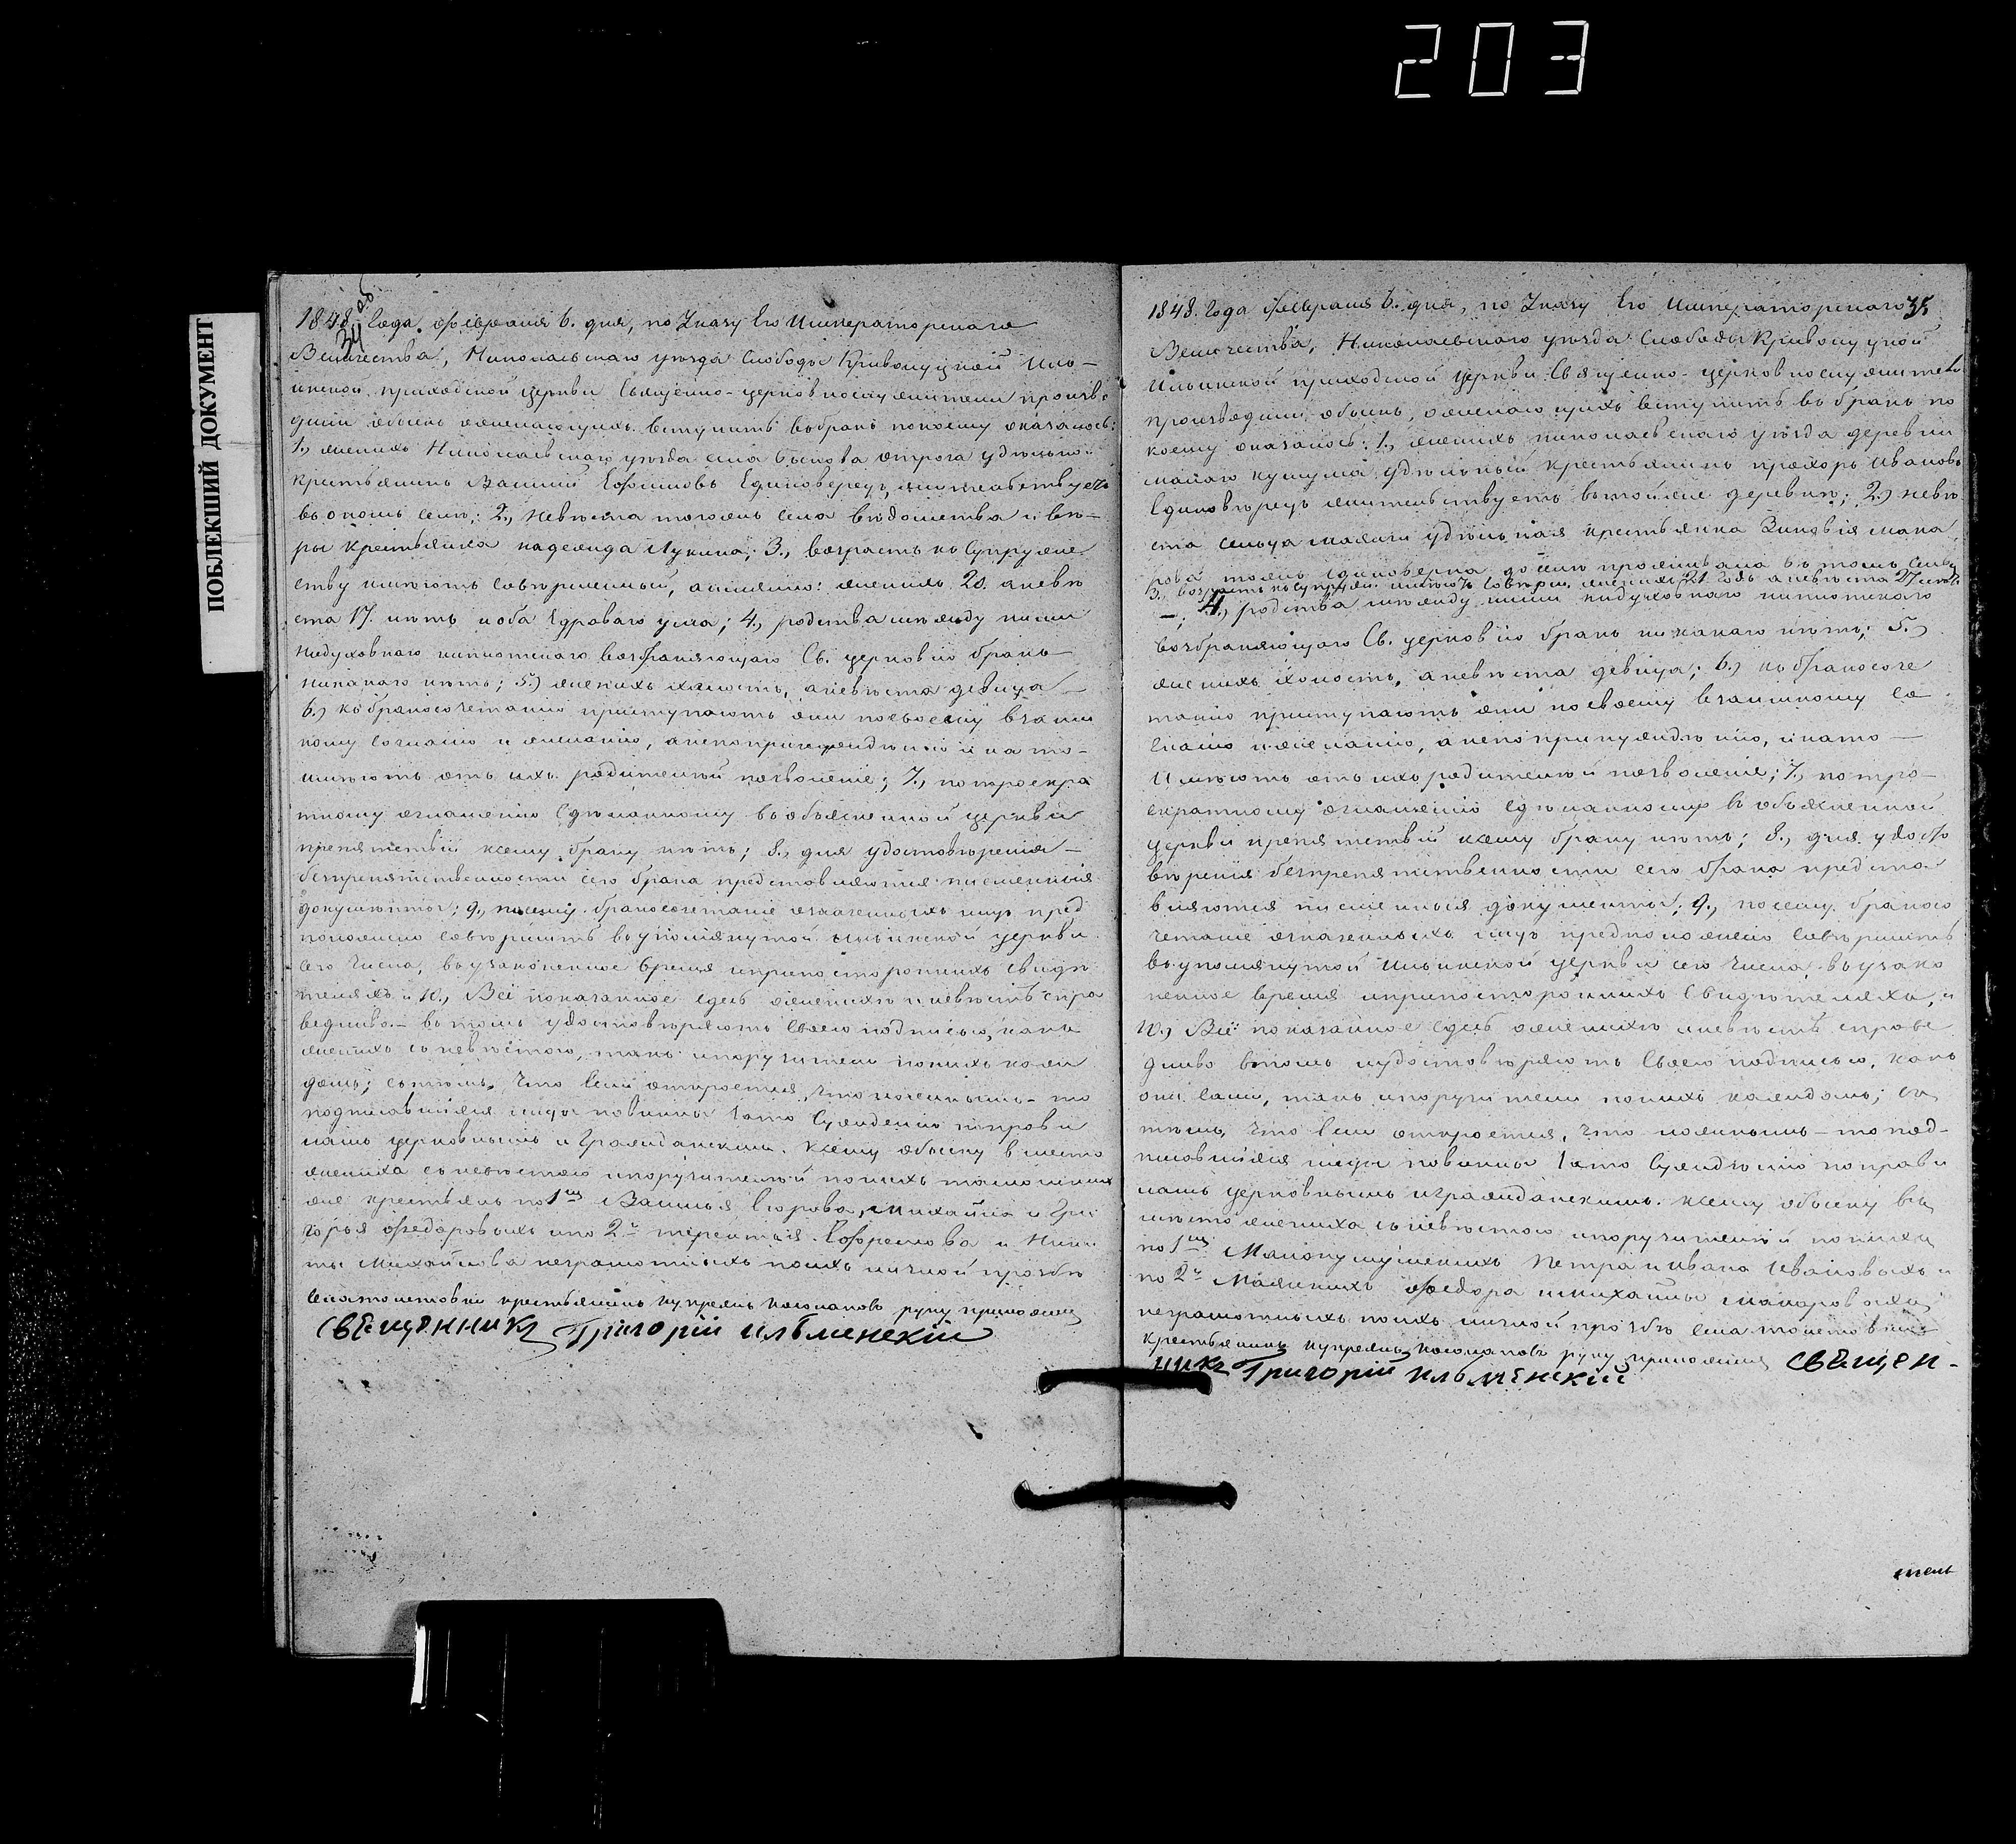 203
ПОБЛЕКШИЙ ДОКУМЕНТ
34 об
1848. Года. февраля 6. дня, по Указу Его Императорскаго
Величества, Николаевскаго уезда Слободы Криволуцкой Иль-
инской приходской церкви Священно-церковнослужители произво
дили обыскъ желающихъ вступить въ бракъ по коему оказалось:
1., женихъ Николаевскаго уезда села Быкова отрога удельной
крестьянинъ Василий Ефимовъ Единоверецъ, жительствуетъ
въ ономъ селе; 2., Невеста тогожъ села ведомства и ве-
ры крестьянка надежда Лукина; 3., возрастъ къ супруже
ству имеютъ совершенный, а именно: женихъ 20. а неве
ста 17. летъ и оба здраваго ума; 4., родства между ними
ни духовнаго ни плотскаго возбраняющаго Св. церковiю бракъ
никакаго нетъ; 5.) женихъ холостъ, а невеста девица
6.) къ бракосочетанiю приступаютъ они по своему взаим
ному согласiю и желанiю, а не по принужденiю и на то-
имеютъ отъ ихъ родителей позволенiе; 7., по троекра
тному оглашенiю сделанному въ объясненной церкви
препятствiй к сему браку нетъ; 8., для удостоверенiя
безпрепятственности сего брака представляются письменныя
документы; 9., по сему бракосочетанiе означенныхъ лицъ пред
положено совершить въ упомянутой Ильинской церкви
сего числа, въ узаконенное время и при постороннихъ свиде
теляхъ и 10., Всё показанное здесь о женихе и невесте спра
ведливо въ томъ удостоверяютъ своею подписью, какъ
женихъ съ невестою, такъ и поручители по нихъ каж
домъ; съ темъ, что если откроется, что ложнымъ то
подписавшiяся лица повинны зато сужденiю по прави
ламъ церковнымъ и Гражданскимъ. К сему обыску вместо
жениха съ невестою и поручителей по нихъ
же крестьянъ по 1мъ Василья Егорова, Михайла и Гри
горья Федоровыхъ и по 2й терентья Ефремова и Ники
ты Михайлова неграмотныхъ по ихъ личной прозбе
села толстовки крестьянинъ купреянъ колмаковъ руку приложилъ
священникъ Григорiй ильменскiй
1848. Года февраля 6. дня, по Указу Его Императорскаго 35
Величества, Николаевскаго уезда Слободы Криволуцкой
Ильинской приходской церкви Священно-церковнослужители
производили обыскъ, о желающихъ вступить въ бракъ по
коему оказалось: 1., женихъ николаевскаго уезда деревни
малаго кушума удельный крестьянинъ прохоръ Ивановъ
Единоверецъ жительствуетъ въ той же деревне; 2.) неве
ста сельца маянги удельная крестьянка Зиновiя мака
рова тожъ единоверка доселе проживала въ томъ сельце
3., возрастъ къ супруж. имеютъ соверш. женихъ 21 годъ а невеста 27 летъ
4., родства между ними ни духовнаго ни плотскаго
возбраняющаго Св. церковiю бракъ никакаго нетъ; 5.)
женихъ холостъ, а невеста девица; 6.) къ бракосоче
танiю приступаютъ они по своему взаимному со
гласiю и желанiю, а не по принужденiю, и на то
Имеютъ отъ ихъ родителей позволенiе; 7., по тро-
екратному оглашенiю сделанному въ объясненной
церкви препятствiй к сему браку нетъ; 8., для удосто
веренiя безпрепятственности сего брака предста
вляются письменныя документы; 9., по сему бракосо
четанiе означенныхъ лицъ предположено совершить
въ упомянутой Ильинской церкви сего числа въ узако
ненное время и при постороннихъ свидетеляхъ, и
10.) Всё показанное здесь о женихе и невесте справе
дливо в томъ и удостоверяютъ своею подписью, какъ
они сами, такъ и поручители по нихъ каждомъ; съ
темъ, что если откроется, что ложнымъ - то под-
писавшiяся лица повинны зато сужденiю по прави
ламъ церковнымъ и гражданскимъ. к сему обыску в
место жениха съ невестою и поручителей по нихъ
по 1мъ Малокушумскихъ Петра и Ивана Ивановыхъ и
по 2й Маянскихъ федора и михайлы макаровыхъ
неграмотныхъ по ихъ личной прозбе села толстовки
крестьянинъ купреянъ колмаковъ руку приложилъ священ-
никъ Григорiй ильменскiй
тель